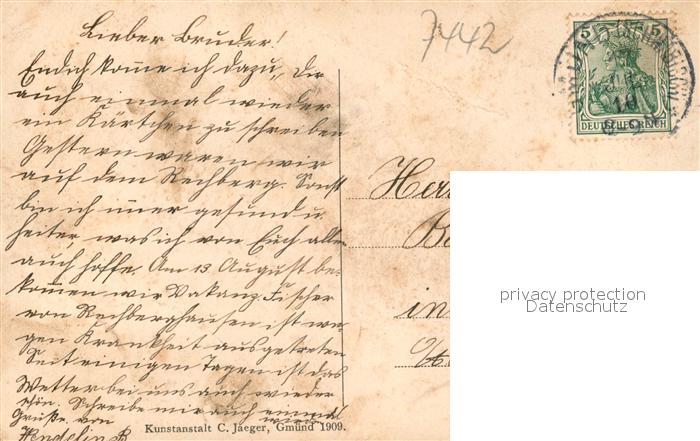 7442
Lieber Bruder!
Endich kome ich dazu, Dir
auch einmal wieder
ein Kärtchen zu schreiben
Gestern waren wir
auf dem Rechberg. Sonst
bin ich imer gesund u.
heiter, was ich von Euch allen
auch hoffe. Am 13 August be-
komen wir Vakanz. Fischer
von Rechberghausen ist we-
gen Krankheit ausgetreten
Seit einigen Tagen ist das
Wetter bei uns auch wieder
schön. Schreibe mir auch einmal
wieder
Grüße von
Wendelin B
5 5
DEUTSCHES REICH
Herr
in
privacy protection
Datenschutz
Kunstanstalt C. Jaeger, Gmünd 1909.